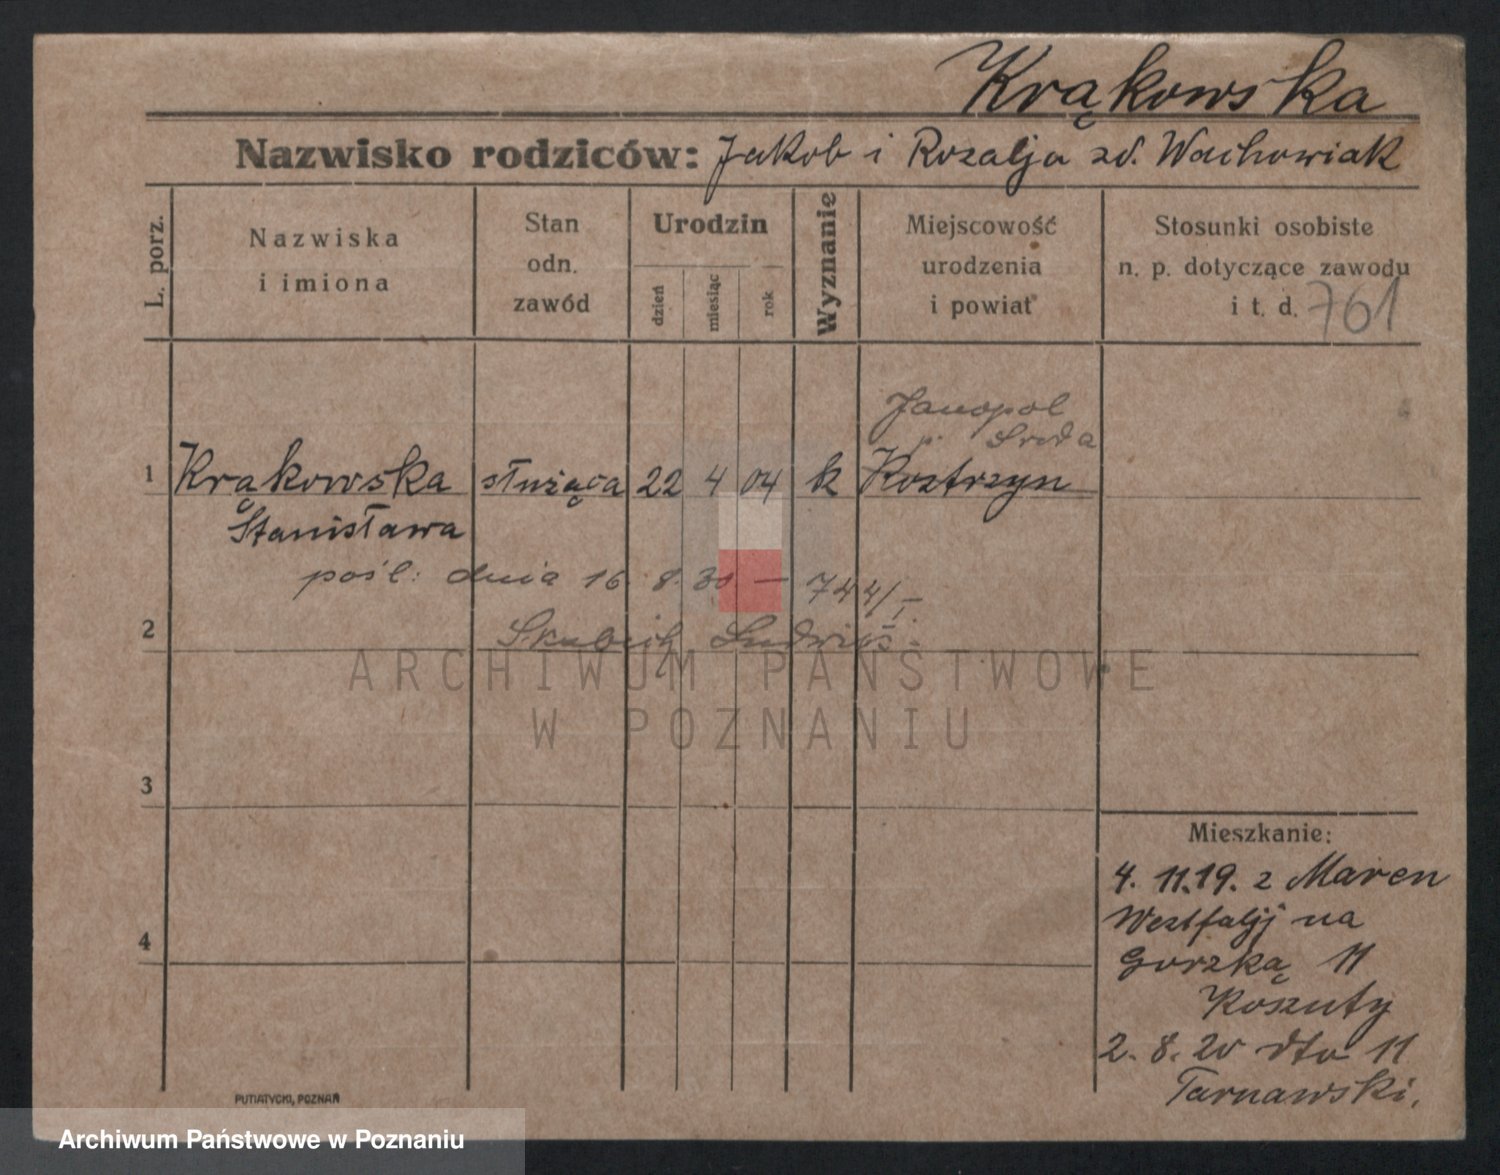 Krąkowska
Nazwisko rodziców: Jakob i Rozalja zd. Wachowiak
L. porz.
Nazwiska
i imiona
Stan
odn.
zawód
Urodzin
dzień
miesiąc
rok
Wyznanie
Miejscowość
urodzenia
i powiat
Stosunki osobiste
n. p. dotyczące zawodu
i t. d. 761
Janopol
p. Środa
1 Krąkowska służąca 22 4 04 k Kostrzyn
Stanisława
pośl: dnia 16. 8. 30 — 744/I.
2
Ludwig
ARCHIWUM PAŃSTWOWE
W POZNANIU
3
4
Mieszkanie:
4. 11.19. z Maren
Westfalji na
Gorzką 11
Koszuty
2. 8. 20 dto 11
Tarnawski.
PUTIATYCKI, POZNAŃ
Archiwum Państwowe w Poznaniu